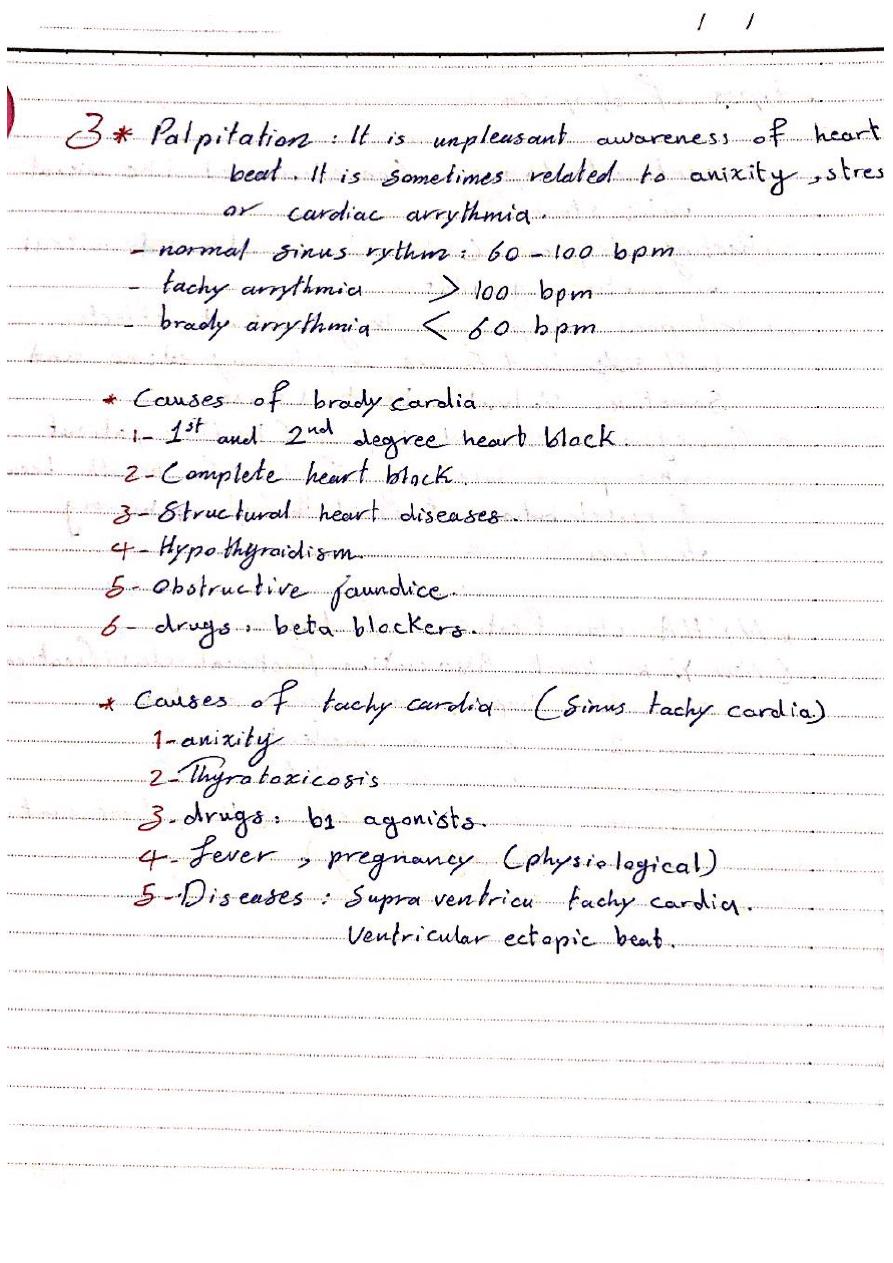 / /
3 * Palpitation : It is unpleasant awareness of heart
beat. It is sometimes related to anixity , stres
or cardiac arrythmia.
- normal sinus rythm : 60 - 100 bpm
- tachy arrythmia > 100 bpm
- brady arrythmia < 60 bpm
* Causes of brady cardia
1- 1st and 2nd degree heart block.
2- Complete heart block.
3- Structural heart diseases.
4- Hypothyroidism.
5- Obstructive jaundice.
6- drugs : beta blockers.
* Causes of tachy cardia (Sinus tachy cardia)
1- anixity
2- Thyrotoxicosis
3- drugs : b1 agonists.
4- fever , pregnancy (physiological)
5- Diseases : Supra ventricu tachy cardia.
Ventricular ectopic beat.